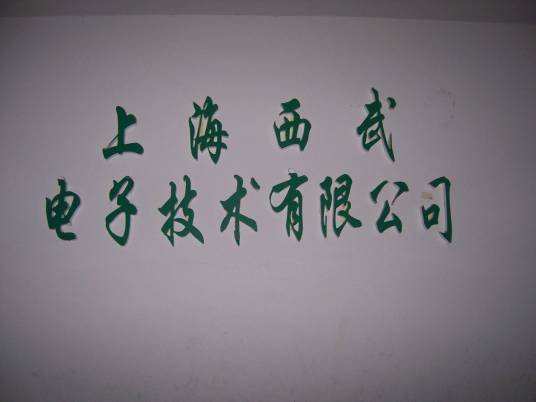 上海西武
电子技术有限公司